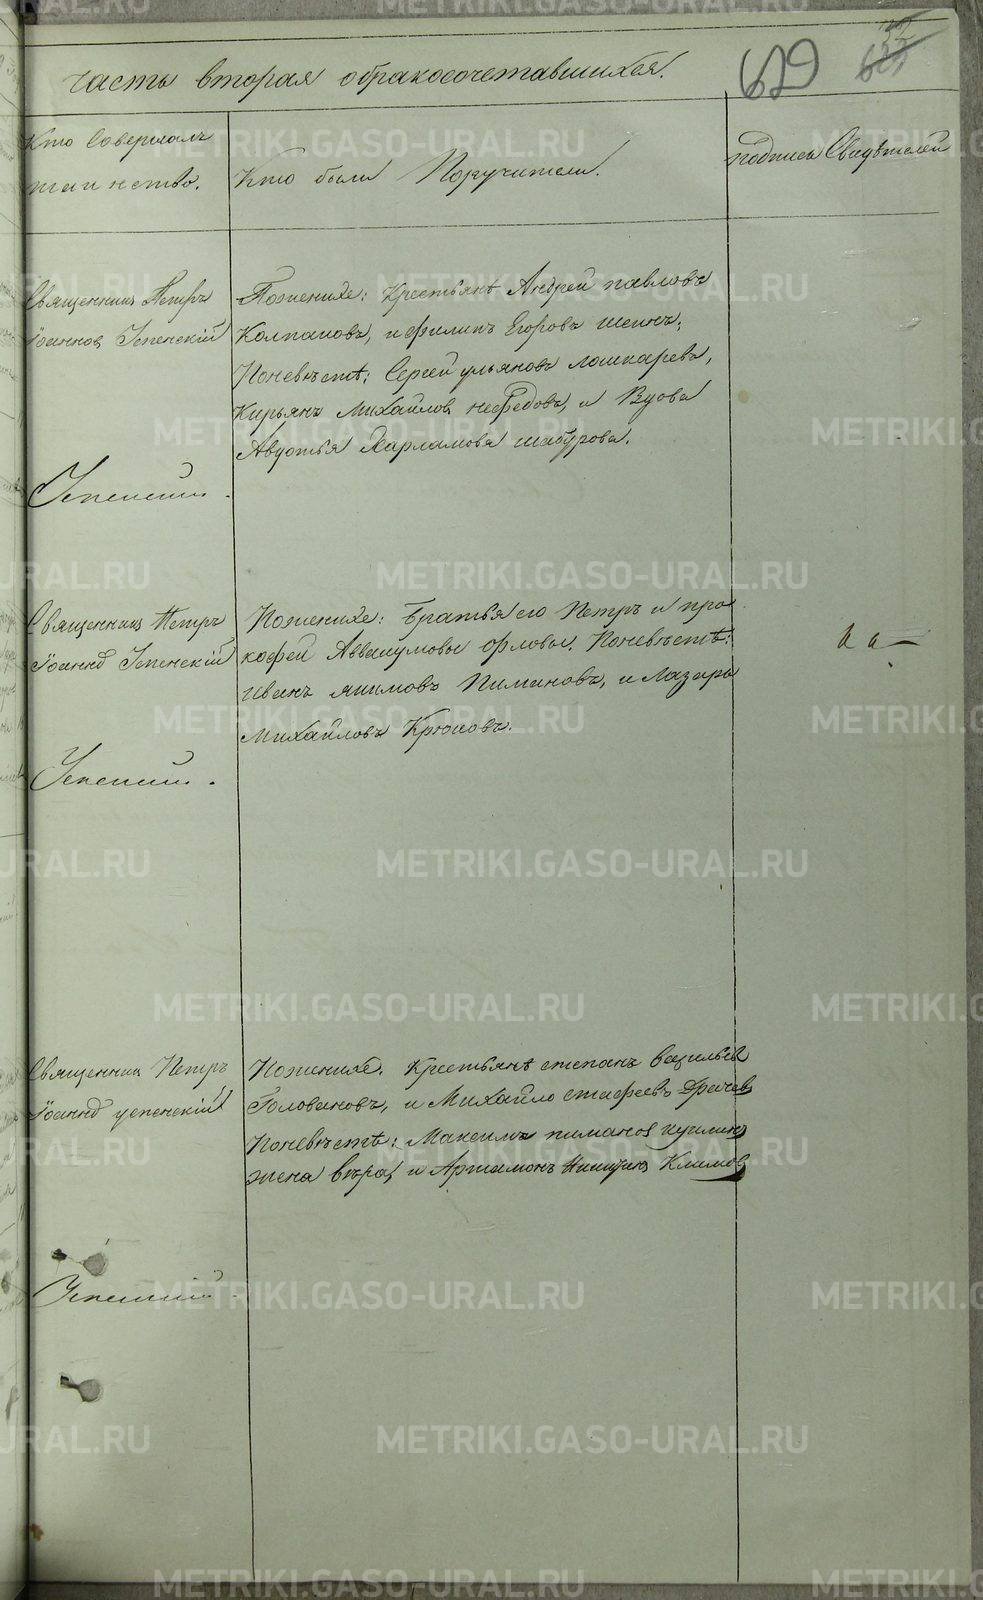 часть вторая обракосочетавшихся.
629
Кто Совершалъ
таинство.
Кто были Поручители.
подпись Свидѣтелей
Священникъ Петръ
Іоанновъ Успенскій
Поженихе: Крестьянѣ Андрей павловъ
Колпаковъ, и филипъ Егоровъ шеинъ;
Поневѣстѣ: Сергей ульяновъ лошкаревъ,
Кирьянъ Михайловъ нефедовъ, и Вдова
Авдотья Харламова шабурова.
Успенский.
Священникъ Петръ
Іоаннъ Успенскій
Поженихе: Братья его Петръ и про
кофей Аввакумовы орловы. Поневѣстѣ:
иванъ якимовъ Пимановъ, и Лазарь
Михайловъ Крюковъ.
Успенский.
Священникъ Петръ
Іоаннъ успенскій
Поженихе. Крестьянѣ степанъ васильев
Головановъ, и Михайло стафеевъ Драчевъ
Поневѣстѣ: Максимъ пимановъ
жена вѣра, и Артамонъ Никитинъ Климовъ
Успенский.
METRIKI.GASO-URAL.RU